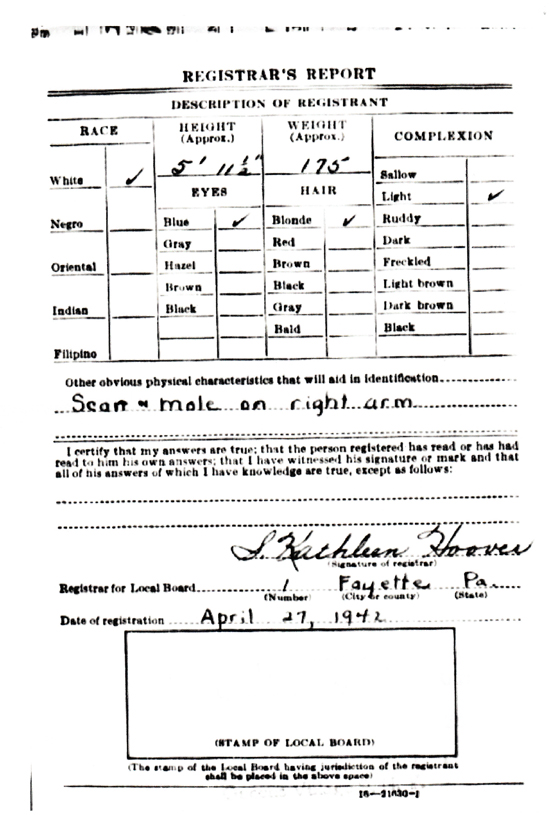 REGISTRAR'S REPORT
DESCRIPTION OF REGISTRANT
RACE
HEIGHT (Approx.)
WEIGHT (Approx.)
COMPLEXION
5' 11½"
175
White ✓
Sallow
EYES
HAIR
Light ✓
Negro
Blue ✓
Blonde ✓
Ruddy
Gray
Red
Dark
Oriental
Hazel
Brown
Freckled
Brown
Black
Light brown
Indian
Black
Gray
Dark brown
Bald
Black
Filipino
Other obvious physical characteristics that will aid in identification
Scar & mole on right arm
I certify that my answers are true; that the person registered has read or has had
read to him his own answers; that I have witnessed his signature or mark and that
all of his answers of which I have knowledge are true, except as follows:
S. Kathleen Hoover
(Signature of registrar)
Registrar for Local Board 1 Fayette Pa.
(Number) (City or county) (State)
Date of registration April 27, 1942
(STAMP OF LOCAL BOARD)
(The stamp of the Local Board having jurisdiction of the registrant
shall be placed in the above space)
16—21630-1